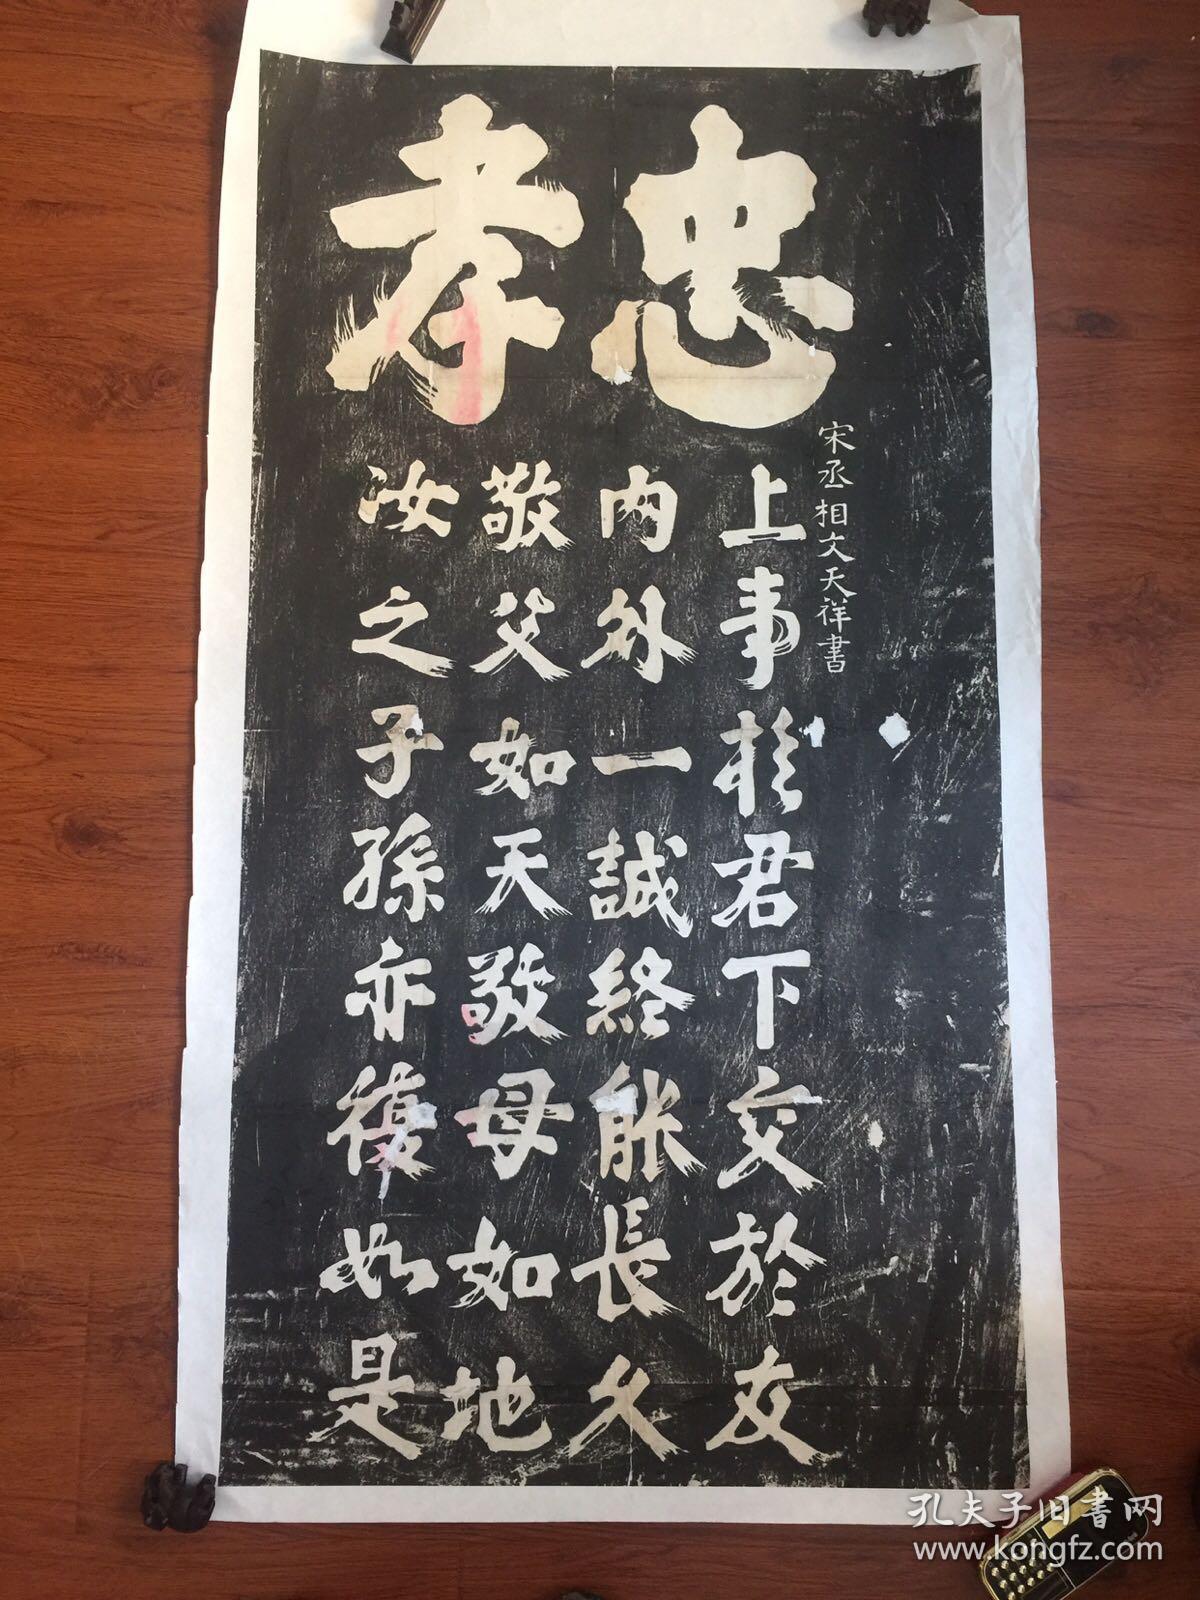 忠孝
宋丞相文天祥書
上事於君下交於友
內外一誠終能長久
敬父如天敬母如地
汝之子孫亦復如是
孔夫子旧書网
www.kongfz.com